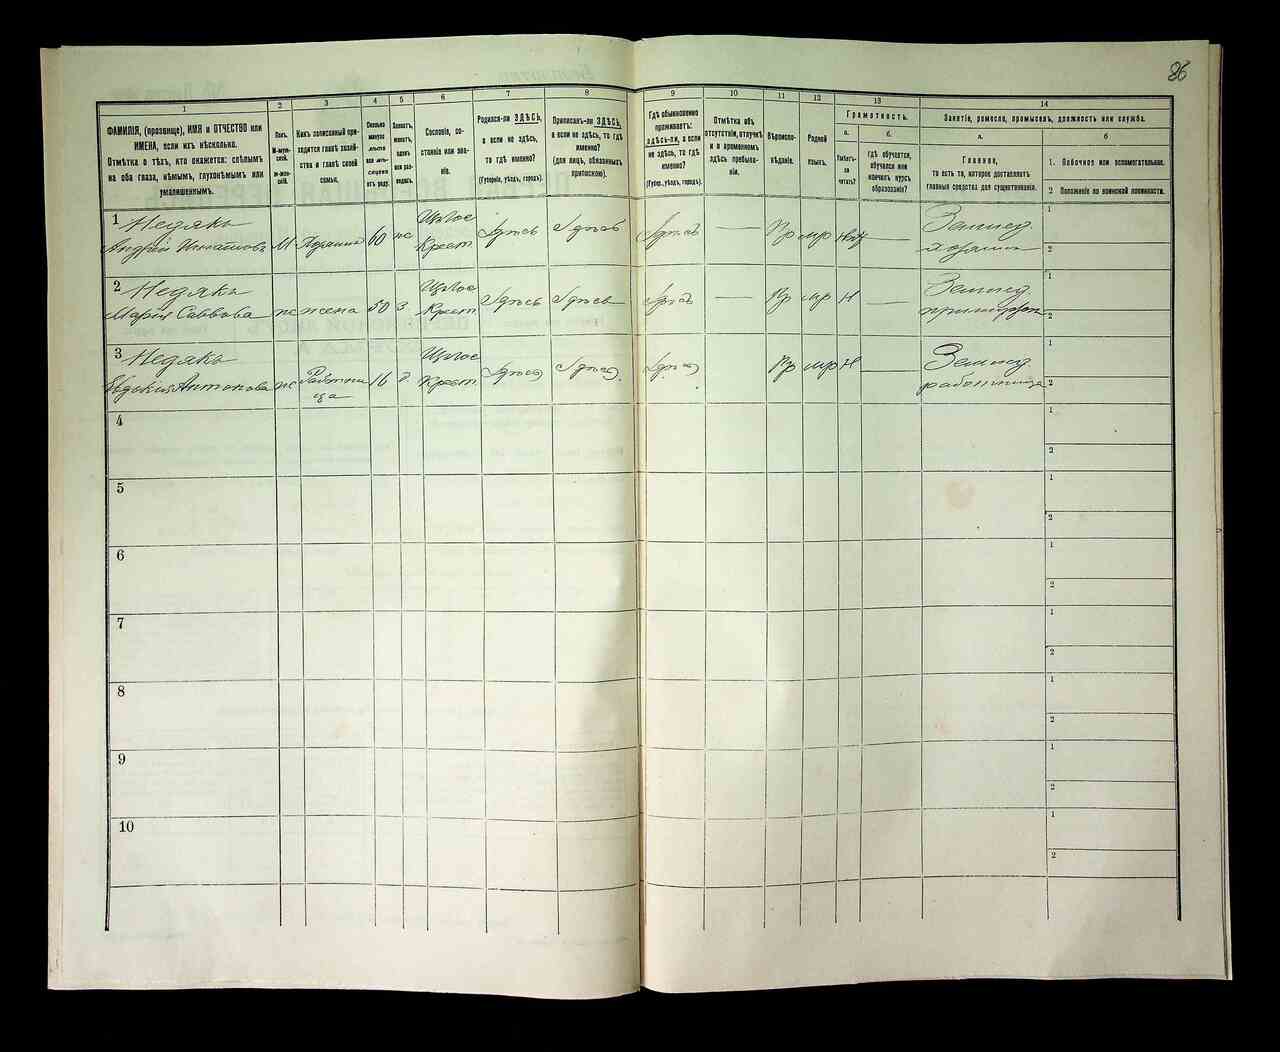 86
1 2 3 4 5 6 7 8 9 10 11 12 13 14
ФАМИЛІЯ, (прозвище), ИМЯ и ОТЧЕСТВО или
ИМЕНА, если ихъ нѣсколько.
Отмѣтка о тѣхъ, кто окажется: слѣпымъ
на оба глаза, нѣмымъ, глухонѣмымъ или
умалишеннымъ.
Полъ.
М-мужской.
Ж-женскій.
Какъ записанный приходится главѣ хозяйства и главѣ своей
семьи.
Сколько
минуло
лѣтъ
или мѣсяцевъ
отъ роду.
Холостъ,
женатъ,
вдовъ
или разведенъ.
Сословіе, состояніе или званіе.
Родился-ли ЗДѢСЬ,
а если не здѣсь,
то гдѣ именно?
(Губернія, уѣздъ, городъ).
Приписанъ-ли ЗДѢСЬ,
а если не здѣсь, то гдѣ
именно?
(для лицъ, обязанныхъ
припискою).
Гдѣ обыкновенно
проживаетъ:
ЗДѢСЬ-ли, а если
не здѣсь, то гдѣ
именно?
(Губер., уѣздъ, городъ).
Отмѣтка объ
отсутствіи, отлучкѣ
и о временномъ
здѣсь пребываніи.
Вѣроисповѣданіе.
Родной
языкъ.
Грамотность.
а.
Умѣетъ-ли
читать?
б.
гдѣ обучается,
обучался или
кончилъ курсъ
образованія?
Занятіе, ремесло, промыселъ, должность или служба.
а.
Главное,
то есть то, которое доставляетъ
главныя средства для существованія.
б
1. Побочное или вспомогательное.
2 Положеніе по воинской повинности.
1 Недякъ Цѣлос Землед. 1
Андрій Игнатовъ М Хозяинъ 60 же Крест Здѣсь Здѣсь Здѣсь — Пр мр нѣт — хозяин 2
2 Недякъ Цѣлос Землед. 1
Марія Саввова ж жена 50 З Крест Здѣсь Здѣсь Здѣсь — Пр мр Н — 2
3 Недякъ Цѣлос Землед. 1
Евдокія Антонова ж Работни 16 д Крест Здѣсь Здѣсь Здѣсь Пр мр Н работница 2
ца
4 1
2
5 1
2
6 1
2
7 1
2
8 1
2
9 1
2
10 1
2